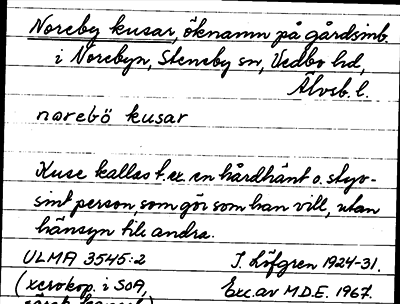 Noreby kusar, öknamn på gårdsinb.
i Norebyn, Steneby sn, Vedbo hd,
Älvsb. l.
norebö kusar
Kuse kallas t. ex. en hårdhänt o. styv-
sint person, som gör som han vill, utan
hänsyn till andra.
ULMA 3545:2 J. Löfgren 1924-31.
(xerokop. i SOA, Exc. av M.D.E. 1967.